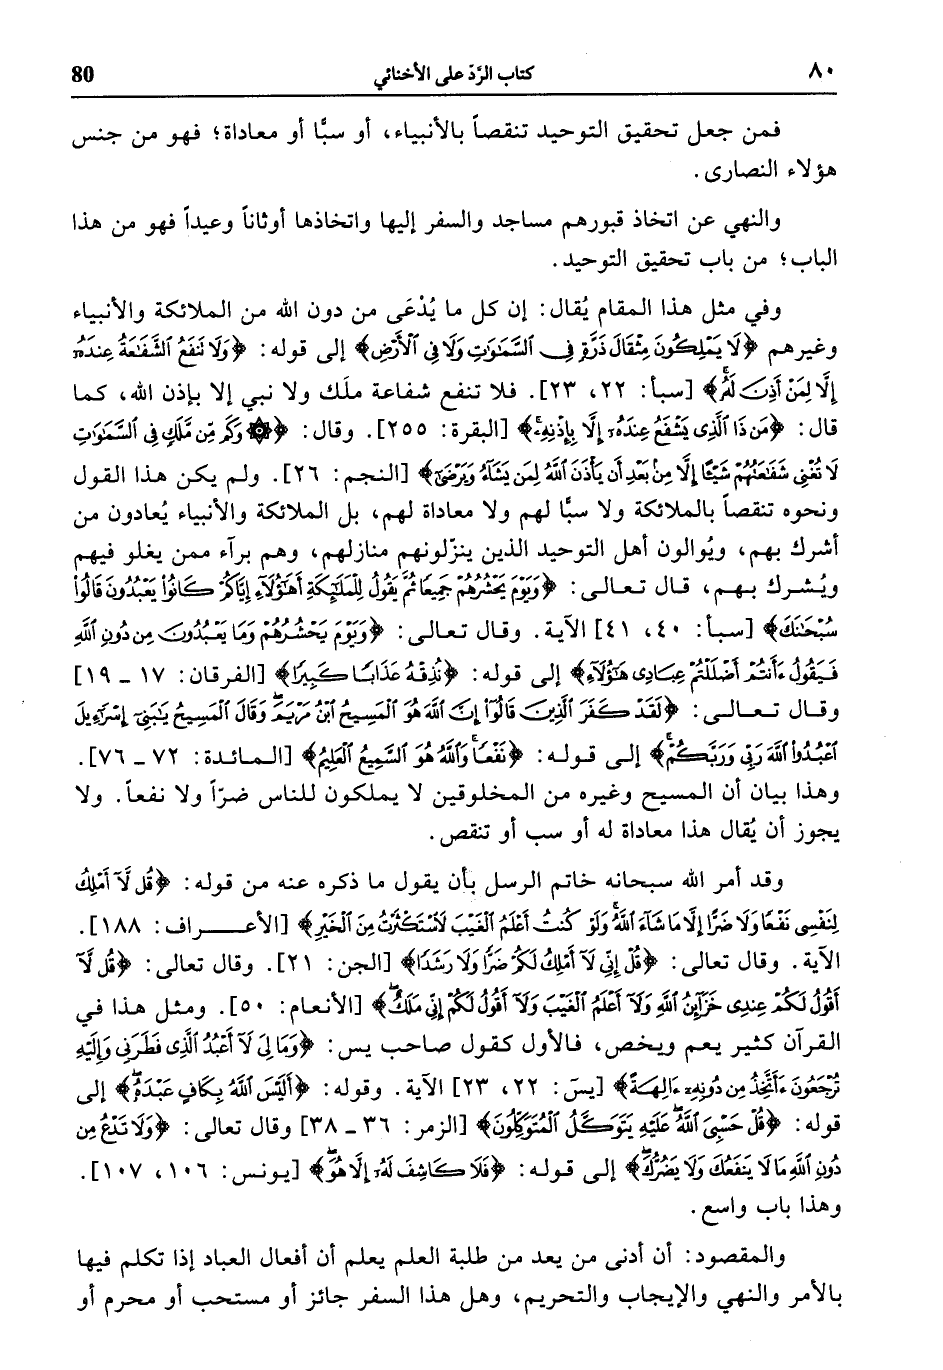 ٨٠ كتاب الرَّدّ على الأخنائي 80
فمن جعل تحقيق التوحيد تنقصاً بالأنبياء، أو سبًّا أو معاداة؛ فهو من جنس
هؤلاء النصارى.
والنهي عن اتخاذ قبورهم مساجد والسفر إليها واتخاذها أوثاناً وعيداً فهو من هذا
الباب؛ من باب تحقيق التوحيد.
وفي مثل هذا المقام يُقال: إن كل ما يُدْعَى من دون الله من الملائكة والأنبياء
وغيرهم ﴿لَا يَمْلِكُونَ مِثْقَالَ ذَرَّةٍ فِى السَّمَٰوَٰتِ وَلَا فِى الْأَرْضِ﴾ إلى قوله: ﴿وَلَا نَنفَعُ الشَّفَٰعَةُ عِندَهُۥ
إِلَّا لِمَنْ أَذِنَ لَهُۥ﴾ [سبأ: ٢٢، ٢٣]. فلا تنفع شفاعة ملَك ولا نبي إلا بإذن الله، كما
قال: ﴿مَن ذَا الَّذِى يَشْفَعُ عِندَهُۥٓ إِلَّا بِإِذْنِهِۦ﴾ [البقرة: ٢٥٥]. وقال: ﴿۞ وَكَم مِّن مَّلَكٍ فِى السَّمَٰوَٰتِ
لَا تُغْنِى شَفَٰعَتُهُمْ شَيْـًٔا إِلَّا مِنۢ بَعْدِ أَن يَأْذَنَ اللَّهُ لِمَن يَشَآءُ وَيَرْضَىٰٓ﴾ [النجم: ٢٦]. ولم يكن هذا القول
ونحوه تنقصاً بالملائكة ولا سبًّا لهم ولا معاداة لهم، بل الملائكة والأنبياء يُعادون من
أشرك بهم، ويُوالون أهل التوحيد الذين ينزّلونهم منازلهم، وهم برآء ممن يغلو فيهم
ويُشرك بهم، قال تعالى: ﴿وَيَوْمَ يَحْشُرُهُمْ جَمِيعًا ثُمَّ يَقُولُ لِلْمَلَٰٓئِكَةِ أَهَٰٓؤُلَآءِ إِيَّاكُمْ كَانُوا۟ يَعْبُدُونَ قَالُوا۟
سُبْحَٰنَكَ﴾ [سبأ: ٤٠، ٤١] الآية. وقال تعالى: ﴿وَيَوْمَ يَحْشُرُهُمْ وَمَا يَعْبُدُونَ مِن دُونِ اللَّهِ
فَيَقُولُ ءَأَنتُمْ أَضْلَلْتُمْ عِبَادِى هَٰٓؤُلَآءِ﴾ إلى قوله: ﴿نُذِقْهُ عَذَابًا كَبِيرًا﴾ [الفرقان: ١٧ ـ ١٩]
وقال تعالى: ﴿لَقَدْ كَفَرَ الَّذِينَ قَالُوٓا۟ إِنَّ اللَّهَ هُوَ الْمَسِيحُ ابْنُ مَرْيَمَ وَقَالَ الْمَسِيحُ يَٰبَنِىٓ إِسْرَٰٓءِيلَ
اعْبُدُوا۟ اللَّهَ رَبِّى وَرَبَّكُمْ﴾ إلى قوله: ﴿نَفْعًا وَاللَّهُ هُوَ السَّمِيعُ الْعَلِيمُ﴾ [المائدة: ٧٢ ـ ٧٦].
وهذا بيان أن المسيح وغيره من المخلوقين لا يملكون للناس ضرّاً ولا نفعاً. ولا
يجوز أن يُقال هذا معاداة له أو سب أو تنقص.
وقد أمر الله سبحانه خاتم الرسل بأن يقول ما ذكره عنه من قوله: ﴿قُل لَّآ أَمْلِكُ
لِنَفْسِى نَفْعًا وَلَا ضَرًّا إِلَّا مَا شَآءَ اللَّهُ وَلَوْ كُنتُ أَعْلَمُ الْغَيْبَ لَاسْتَكْثَرْتُ مِنَ الْخَيْرِ﴾ [الأعراف: ١٨٨].
الآية. وقال تعالى: ﴿قُلْ إِنِّى لَآ أَمْلِكُ لَكُمْ ضَرًّا وَلَا رَشَدًا﴾ [الجن: ٢١]. وقال تعالى: ﴿قُل لَّآ
أَقُولُ لَكُمْ عِندِى خَزَآئِنُ اللَّهِ وَلَآ أَعْلَمُ الْغَيْبَ وَلَآ أَقُولُ لَكُمْ إِنِّى مَلَكٌ﴾ [الأنعام: ٥٠]. ومثل هذا في
القرآن كثير يعم ويخص، فالأول كقول صاحب يس: ﴿وَمَا لِىَ لَآ أَعْبُدُ الَّذِى فَطَرَنِى وَإِلَيْهِ
تُرْجَعُونَ ءَأَتَّخِذُ مِن دُونِهِۦٓ ءَالِهَةً﴾ [يسَ: ٢٢، ٢٣] الآية. وقوله: ﴿أَلَيْسَ اللَّهُ بِكَافٍ عَبْدَهُۥ﴾ إلى
قوله: ﴿قُلْ حَسْبِىَ اللَّهُ عَلَيْهِ يَتَوَكَّلُ الْمُتَوَكِّلُونَ﴾ [الزمر: ٣٦ ـ ٣٨] وقال تعالى: ﴿وَلَا تَدْعُ مِن
دُونِ اللَّهِ مَا لَا يَنفَعُكَ وَلَا يَضُرُّكَ﴾ إلى قوله: ﴿فَلَا كَاشِفَ لَهُۥٓ إِلَّا هُوَ﴾ [يونس: ١٠٦، ١٠٧].
وهذا باب واسع.
والمقصود: أن أدنى من يعد من طلبة العلم يعلم أن أفعال العباد إذا تكلم فيها
بالأمر والنهي والإيجاب والتحريم، وهل هذا السفر جائز أو مستحب أو محرم أو